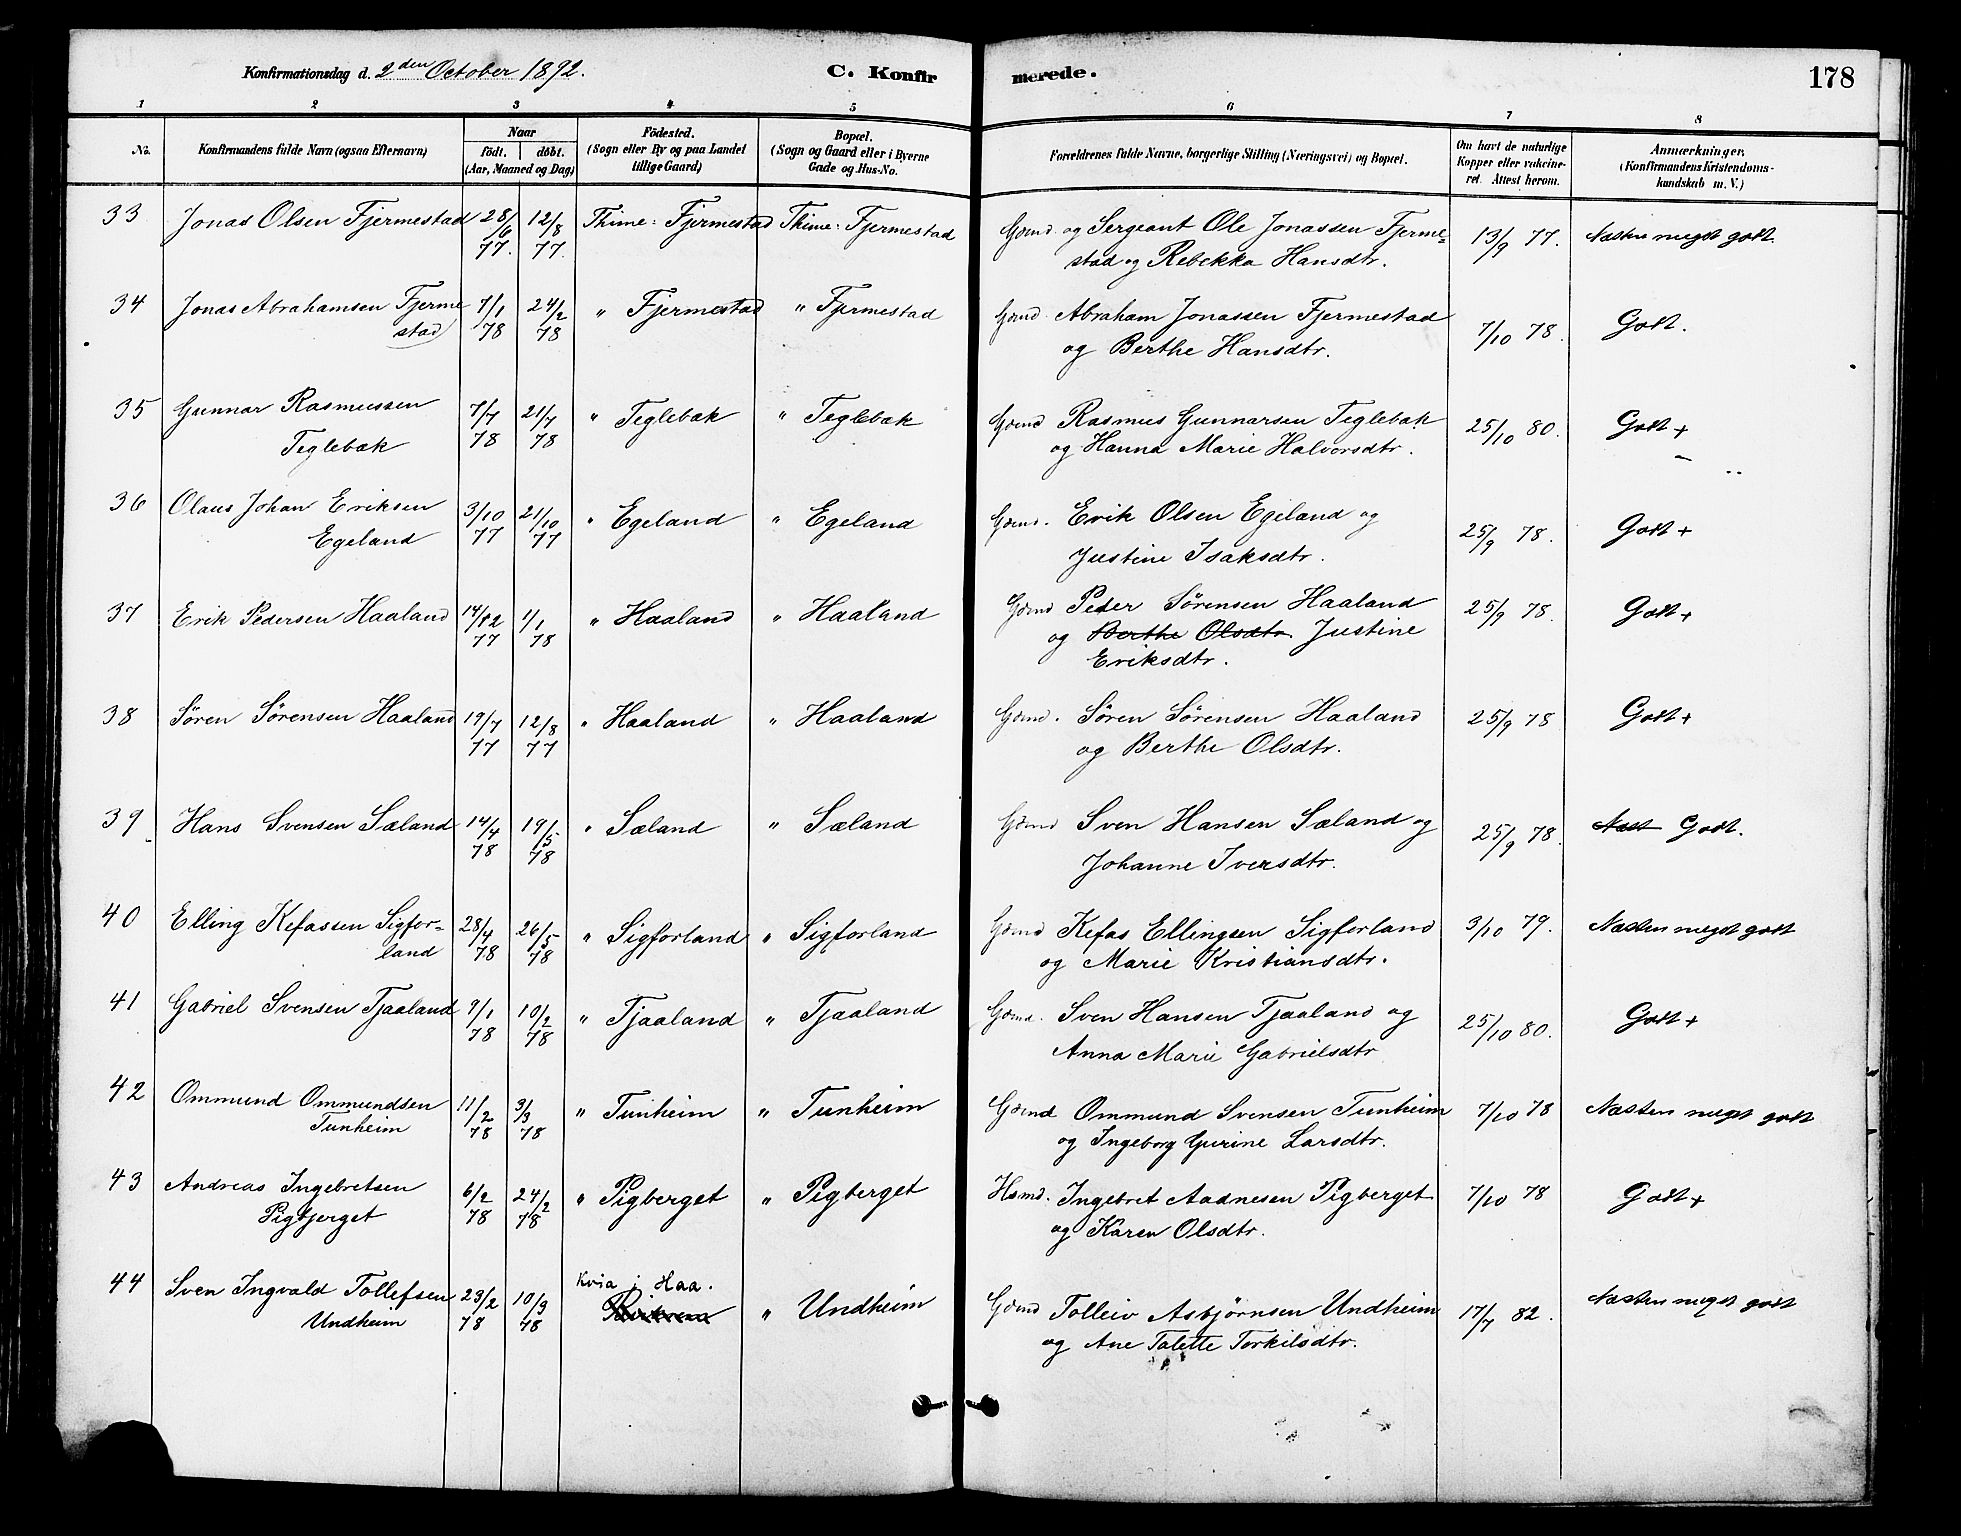 Konfirmationsdag d. 2den October 1892. C. Konfirmerede. 178
1 2 3 4 5 6 7 8
No. Konfirmandens fulde Navn (ogsaa Efternavn) Naar födt. döbt. (Aar, Maaned og Dag) Födested. (Sogn eller By og paa Landet tillige Gaard) Bopæl. (Sogn og Gaard eller i Byerne Gade og Hus-No. Forældrenes fulde Navne, borgerlige Stilling (Næringsvei) og Bopæl. Om havt de naturlige Kopper eller vakcineret. Attest herom. Anmærkninger, (Konfirmandens Kristendomskundskab m. V.)
33 Jonas Olsen Fjermestad 28/6 77. 12/8 77. Thime: Fjermestad Thime: Fjermestad Gmd. og Sergeant Ole Jonassen Fjerme=
stad og Rebekka Hansdtr. 13/9 77. Næsten meget godt.
34 Jonas Abrahamsen Fjerme
stad 7/1 78 24/2 78 " Fjermestad " Fjermestad Gmd. Abraham Jonassen Fjermestad
og Berthe Hansdtr. 7/10 78. Godt.
35 Gunnar Rasmussen
Teglebak 7/7 78 21/7 78 " Teglebak " Teglebak Gmd Rasmus Gunnarsen Teglebak
og Hanna Marie Halvorsdtr. 25/10 80. Godt +
36 Olaus Johan Eriksen
Egeland 3/10 77 21/10 77 " Egeland " Egeland Gmd. Erik Olsen Egeland og
Justine Isaksdtr. 25/9 78. Godt +
37 Erik Pedersen Haaland 14/12 77 1/1 78 " Haaland " Haaland Gmd Peder Sørensen Haaland
og Berthe Olsdtr. Justine
Eriksdtr. 25/9 78. Godt +
38 Søren Sørensen Haaland 19/7 77 12/8 77 " Haaland " Haaland Gmd. Søren Sørensen Haaland
og Berthe Olsdtr. 25/9 78 Godt +
39 Hans Svensen Sæland 14/4 78 19/5 78 " Sæland " Sæland Gmd Sven Hansen Sæland og
Johanne Iversdtr. 25/9 78. Næst Godt.
40 Elling Kefassen Sigfor-
land 28/4 78 26/5 78 " Sigforland " Sigforland Gmd Kefas Ellingsen Sigforland
og Marie Kristiansdtr. 3/10 79. Næsten meget godt
41 Gabriel Svensen Tjaaland 9/1 78 10/2 78 " Tjaaland " Tjaaland Gmd. Sven Hansen Tjaaland og
Anna Marie Gabrielsdtr 25/10 80. Godt +
42 Ommund Ommundsen
Tunheim 11/2 78 3/3 78 " Tunheim " Tunheim Gmd Ommund Svensen Tunheim
og Ingeborg Gurine Larsdtr. 7/10 78 Næsten meget godt
43 Andreas Ingebretsen
Pigbjerget 6/2 78 24/2 78 " Pigberget " Pigberget Hsmd. Ingebret Aadnesen Pigberget
og Karen Olsdtr. 7/10 78 Godt +
44 Sven Ingvald Tollefsen
Undheim 23/2 78 10/3 78 Kvia i Haa. " Undheim Gmd Tolleiv Asbjørnsen Undheim
og Ane Talette Torkilsdtr. 17/7 82. Næsten meget godt